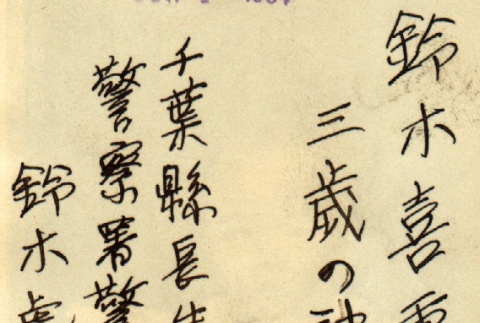 鈴木喜
三歳の
千葉縣長生
警察署警
鈴木